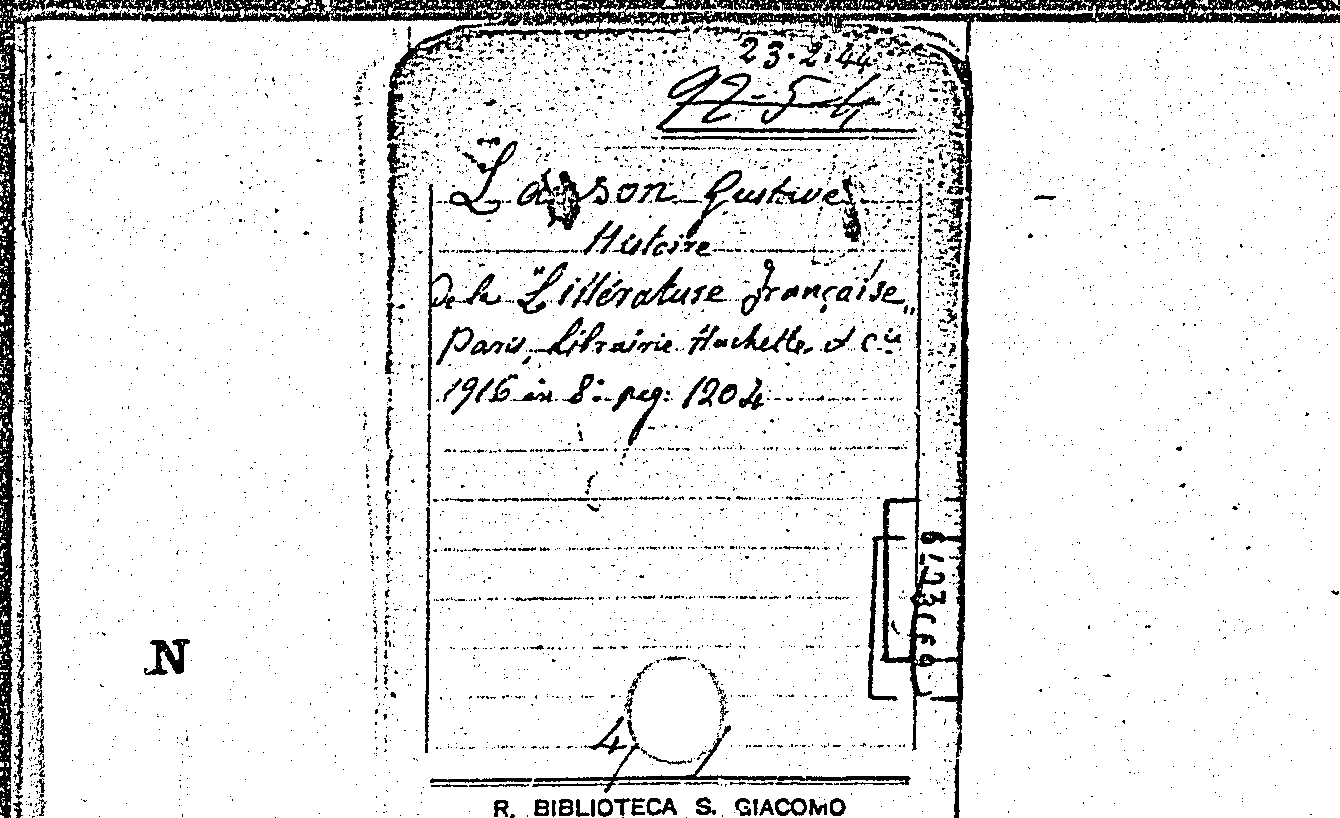 23.2.44
92-5-4
Lanson Gustave
Histoire
de la "Littérature française"
Paris, Librairie Hachette et Cie
1916 in 8° pag. 1204
N
4
R. BIBLIOTECA S. GIACOMO